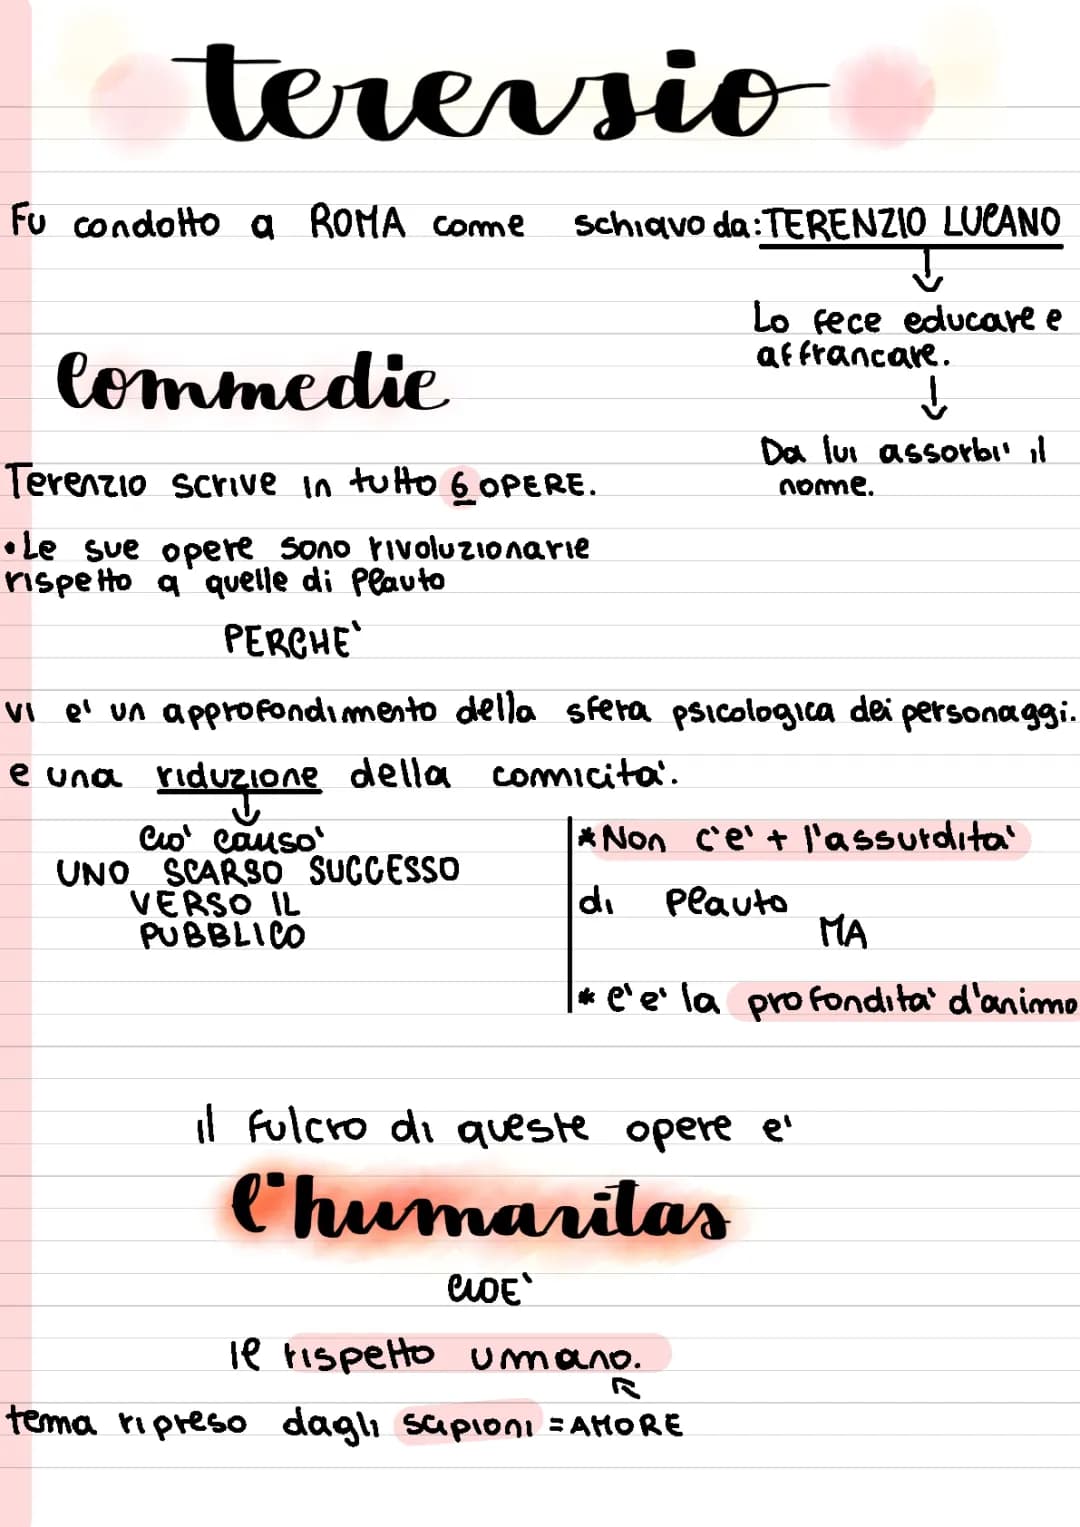 terensio
Fu condotto a ROMA come schiavo da: TERENZIO LUCANO
Lo fece educare e
affrancare.
Da lui assorbi' il
nome.
Commedie
Terenzio scrive in tutto 6 OPERE.
•Le sue opere sono rivoluzionarie
rispetto a quelle di Plauto
PERCHE'
vi e' un approfondimento della sfera psicologica dei personaggi.
e una riduzione della comicita'.
Cio' causo'
UNO SCARSO SUCCESSO
VERSO IL
PUBBLICO
*Non c'e' + l'assurdita'
di Plauto
MA
*c'e' la profondita' d'animo
il fulcro di queste opere e'
l'humanitas
CIOE'
il rispetto umano.
tema ripreso dagli scipioni = AMORE